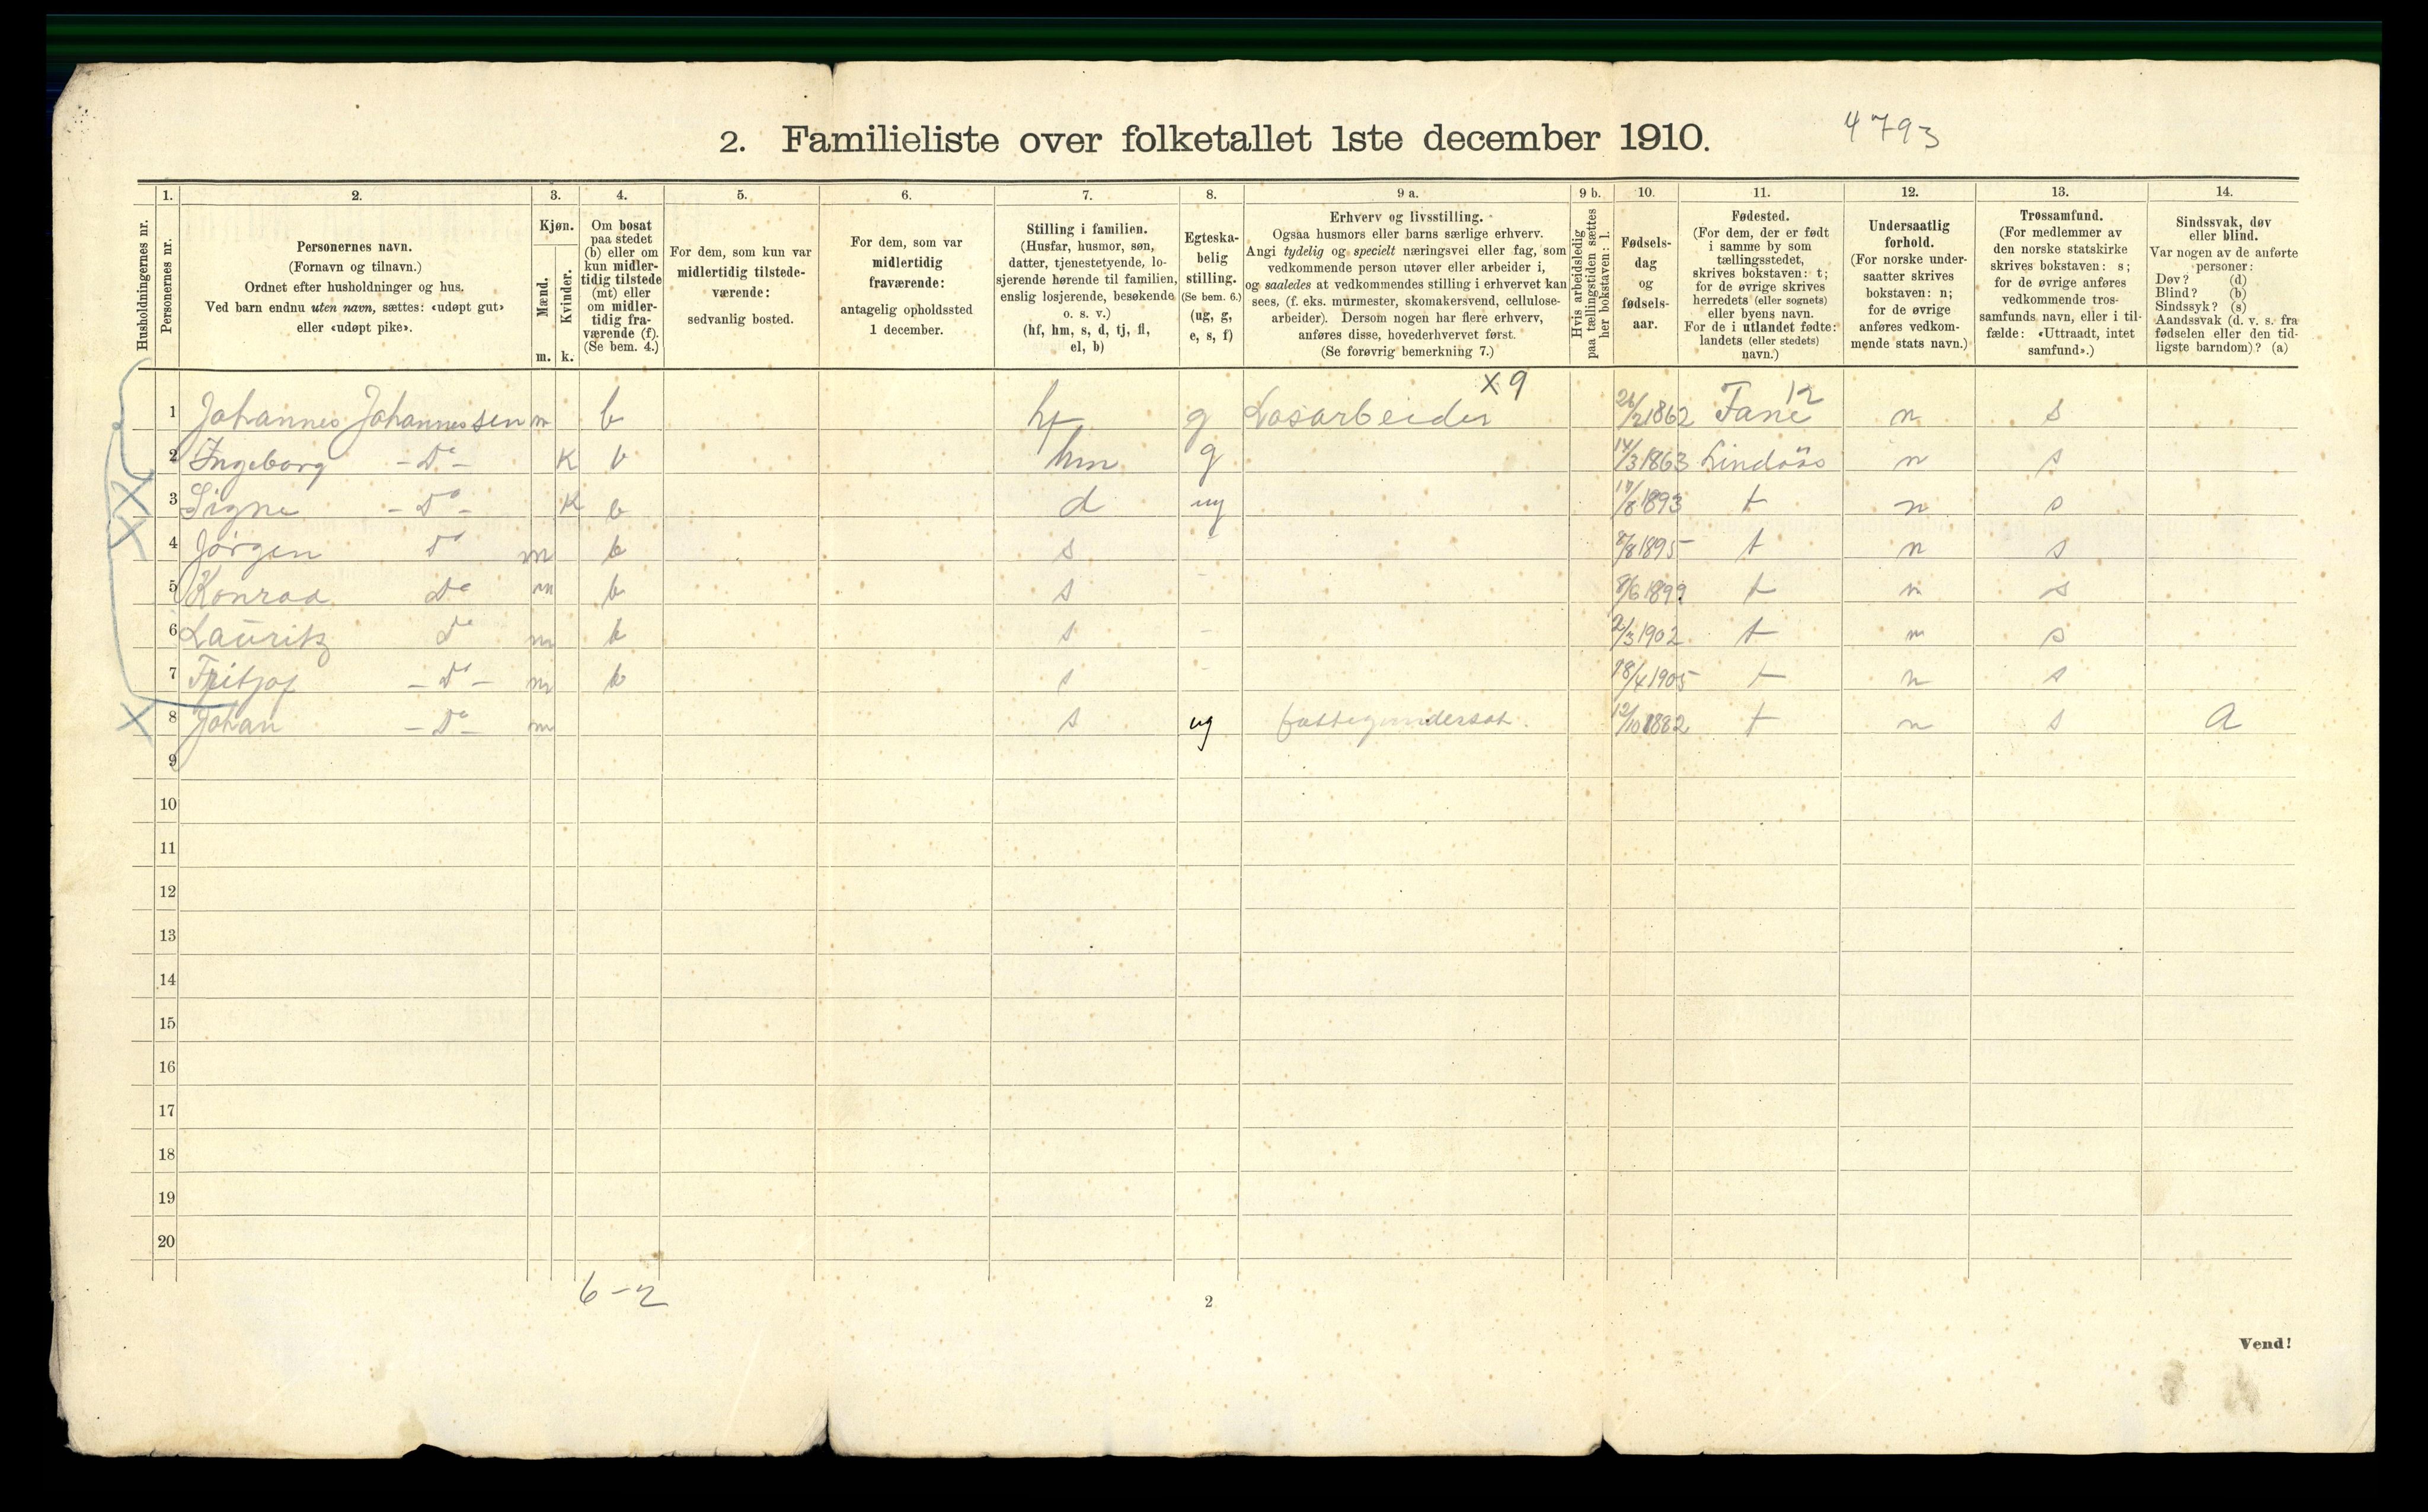 2. Familieliste over folketallet 1ste december 1910.
4793
1. 2. 3. 4. 5. 6. 7. 8. 9 a. 9 b. 10. 11. 12. 13. 14.
Husholdningernes nr.
Personernes nr.
Personernes navn.
(Fornavn og tilnavn.)
Ordnet efter husholdninger og hus.
Ved barn endnu uten navn, sættes: «udøpt gut»
eller «udøpt pike».
Kjøn.
Mænd.
Kvinder.
m. k.
Om bosat
paa stedet
(b) eller om
kun midler-
tidig tilstede
(mt) eller
om midler-
tidig fra-
værende (f).
(Se bem. 4.)
For dem, som kun var
midlertidig tilstede-
værende:
sedvanlig bosted.
For dem, som var
midlertidig
fraværende:
antagelig opholdssted
1 december.
Stilling i familien.
(Husfar, husmor, søn,
datter, tjenestetyende, lo-
sjerende hørende til familien,
enslig losjerende, besøkende
o. s. v.)
(hf, hm, s, d, tj, fl,
el, b)
Egteska-
belig
stilling.
(Se bem. 6.)
(ug, g,
e, s, f)
Erhverv og livsstilling.
Ogsaa husmors eller barns særlige erhverv.
Angi tydelig og specielt næringsvei eller fag, som
vedkommende person utøver eller arbeider i,
og saaledes at vedkommendes stilling i erhvervet kan
sees, (f. eks. murmester, skomakersvend, cellulose-
arbeider). Dersom nogen har flere erhverv,
anføres disse, hovederhvervet først.
(Se forøvrig bemerkning 7.)
Hvis arbeidsledig
paa tællingstiden sættes
her bokstaven: l.
Fødsels-
dag
og
fødsels-
aar.
Fødested.
(For dem, der er født
i samme by som
tællingsstedet,
skrives bokstaven: t;
for de øvrige skrives
herredets (eller sognets)
eller byens navn.
For de i utlandet fødte:
landets (eller stedets)
navn.)
Undersaatlig
forhold.
(For norske under-
saatter skrives
bokstaven: n;
for de øvrige
anføres vedkom-
mende stats navn.)
Trossamfund.
(For medlemmer av
den norske statskirke
skrives bokstaven: s;
for de øvrige anføres
vedkommende tros-
samfunds navn, eller i til-
fælde: «Uttraadt, intet
samfund».)
Sindssvak, døv
eller blind.
Var nogen av de anførte
personer:
Døv? (d)
Blind? (b)
Sindssyk? (s)
Aandssvak (d. v. s. fra
fødselen eller den tid-
ligste barndom)? (a)
x 9
12
1 Johannes Johannessen m b hf g Løsarbeider 26/2 1862 Fane n s
2 Ingeborg - Do - K b hm g 14/3 1863 Lindaas n s
3 Signe - Do - K b d ug 17/8 1893 t n s
4 Jørgen Do m b s - 8/8 1895 t n s
5 Konrad Do m b s - 8/6 1899 t n s
6 Lauritz Do m b s - 2/3 1902 t n s
7 Fritjof - Do - m b s - 18/4 1905 t n s
8 Johan - Do - m s ug fattigunderst. 12/10 1882 t n s a
9
10
11
12
13
14
15
16
17
18
19
20
6-2
2
Vend!